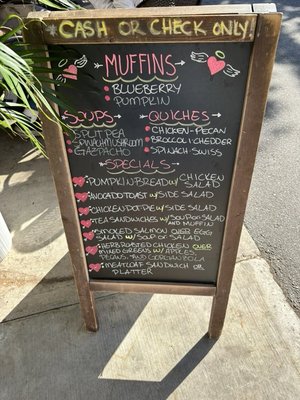 CASH OR CHECK ONLY!
MUFFINS
BLUEBERRY
PUMPKIN
SOUPS
SPLIT PEA
SPINACH MUSHROOM
GAZPACHO
QUICHES
CHICKEN-PECAN
BROCCOLI CHEDDER
SPINACH SWISS
SPECIALS
PUMPKIN BREAD W/ CHICKEN
SALAD
AVOCADO TOAST W/ SIDE SALAD
CHICKEN POT PIE W/ SIDE SALAD
TEA SANDWICHES W/ SOUP OR SALAD
AND MUFFIN
SMOKED SALMON OVER EGG
SALAD W/ SOUP OR SALAD
HERB ROASTED CHICKEN OVER
MIXED GREENS W/ APPLES,
PECANS, AND GORGONZOLA
MEATLOAF SANDWICH OR
PLATTER